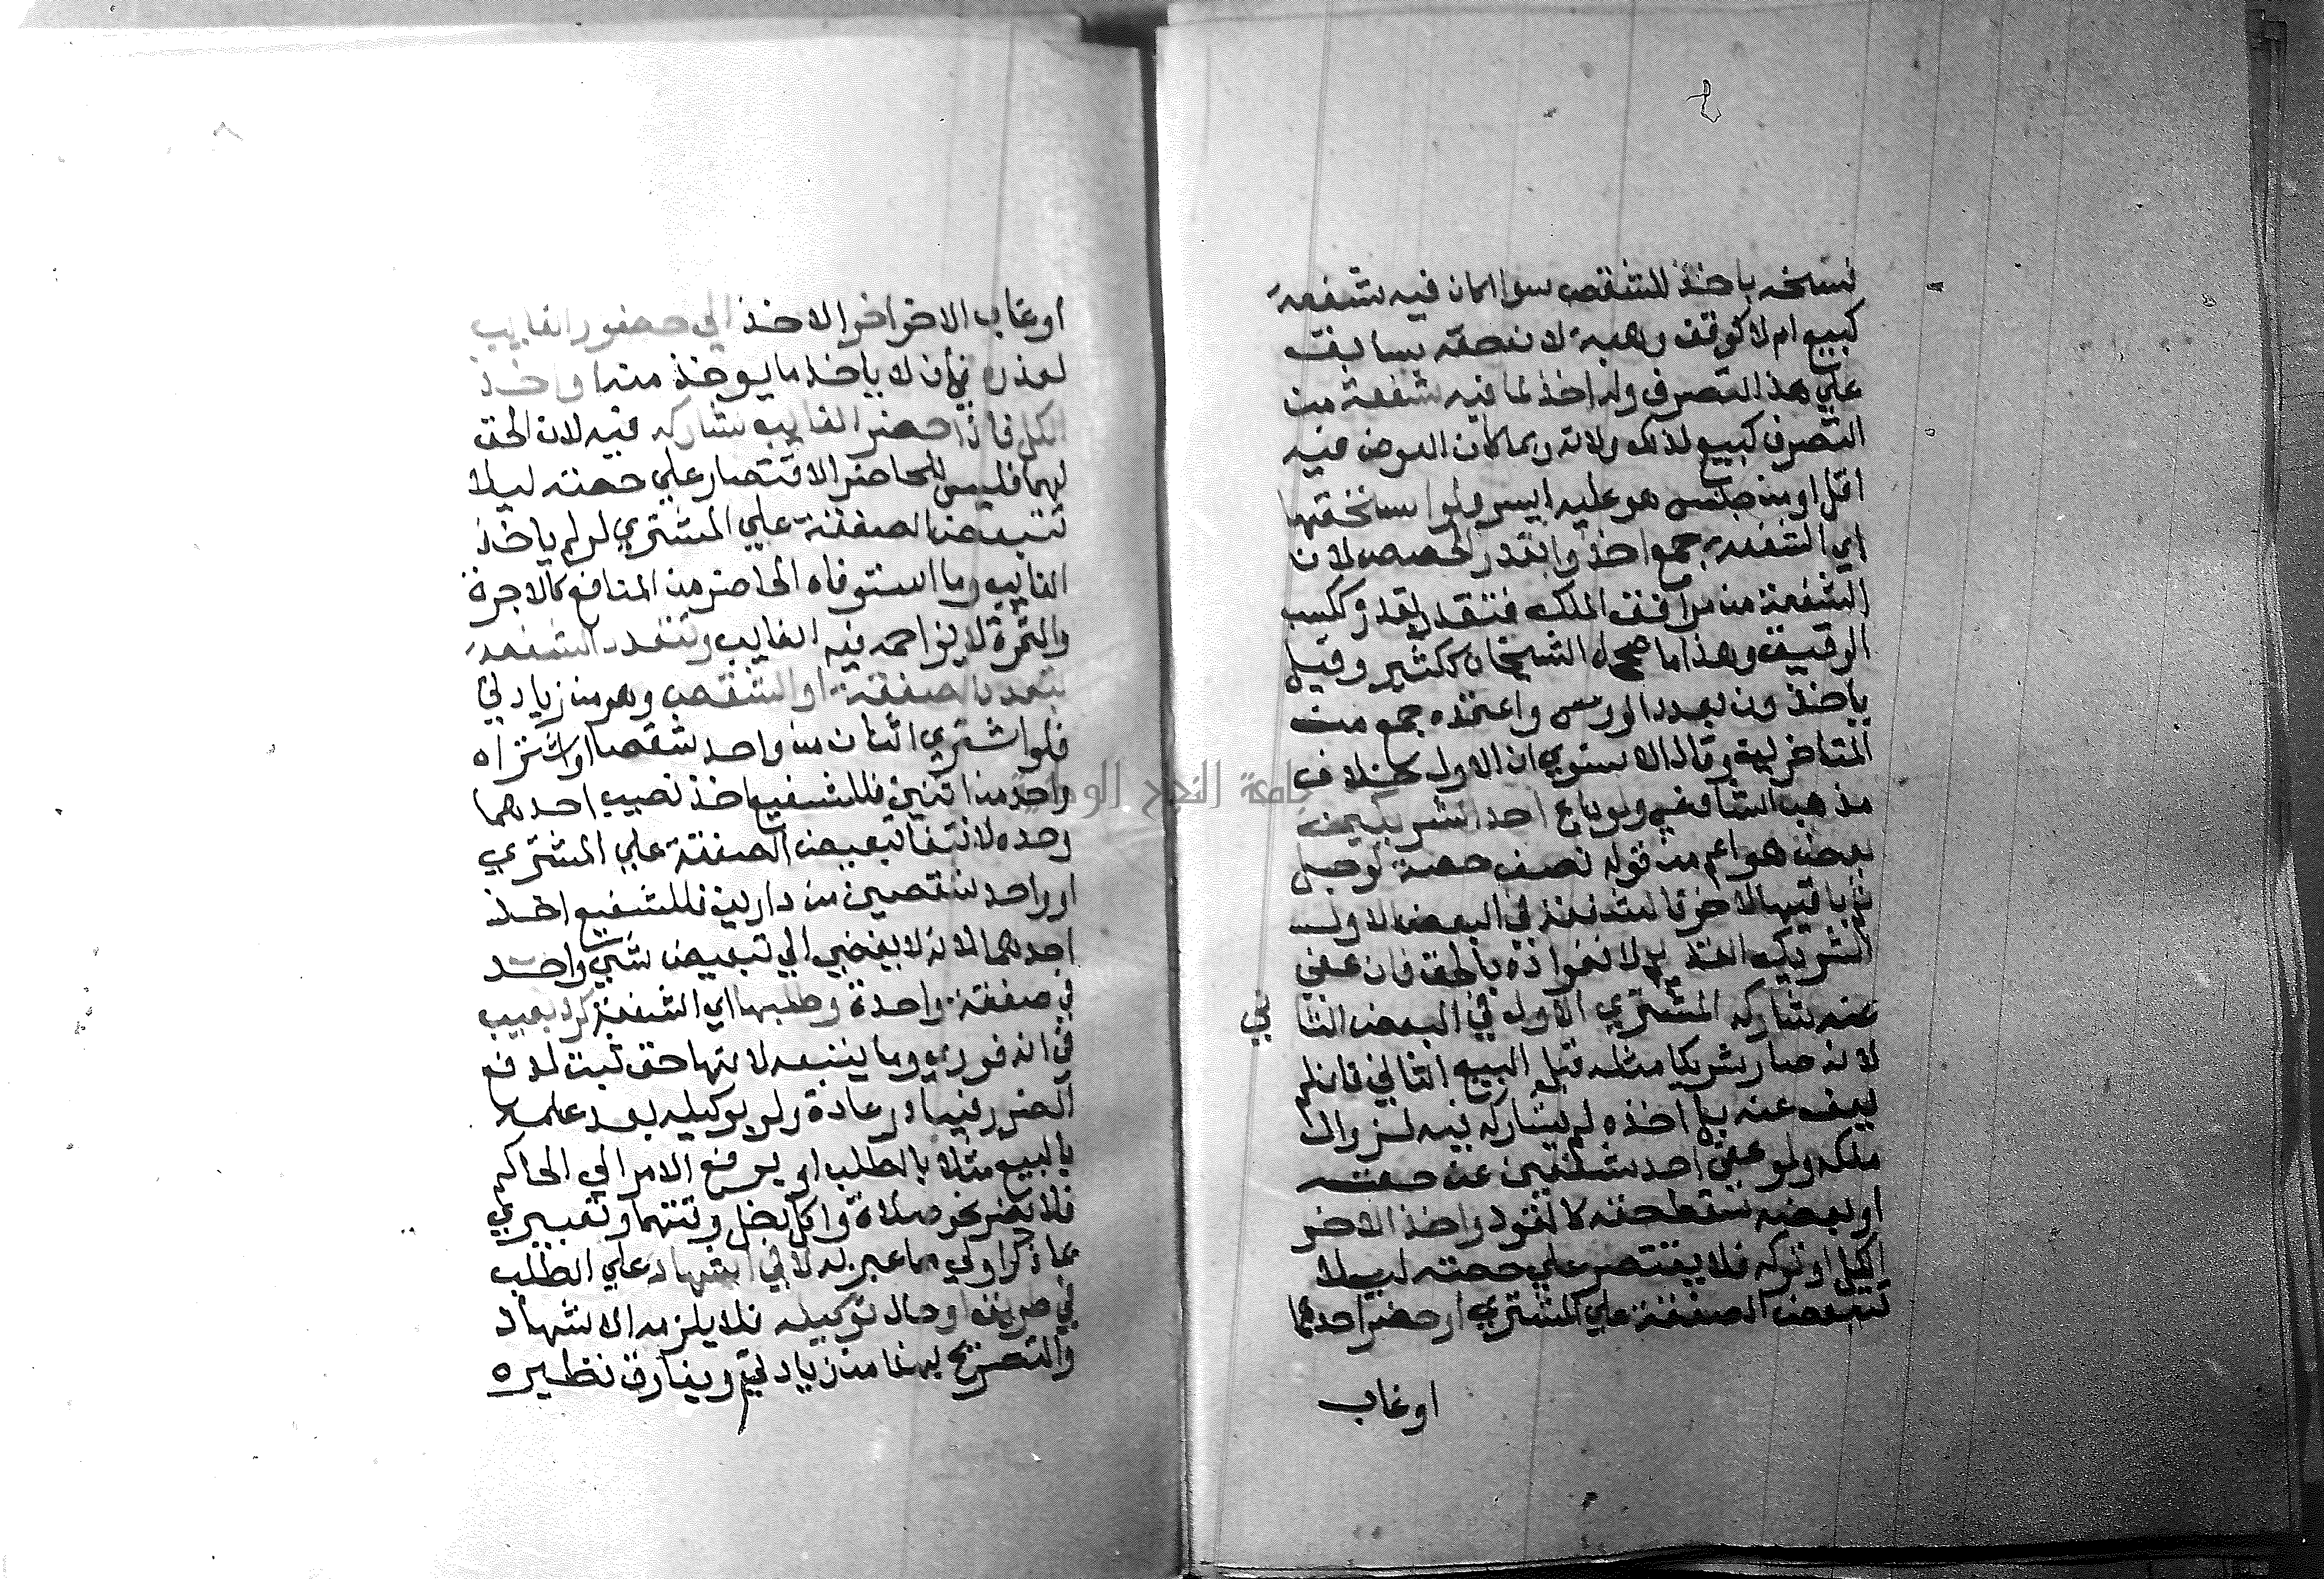 فسخه باخذ للشقص سوا اكان فيه شفعة
كبيع ام لا كوقف وهبة لان حقه سابق
علي هذا التصرف وله اخذ لما فيه شفعة من
التصرف كبيع لذلك ولانه ربما كان العوض فيه
اقل او من جنس هو عليه ايسر ولو استحقها
اي الشفعة جمع اخذوا بقدر الحصص لان
الشفعة من مرافق الملك فتتقدر بقدره ككسب
الرقيق وهذا ما صححه الشيخان ككثير وقيل
ياخذون بعدد الروس واعتمده جمع من
المتاخرين وقال الاسنوي ان الاول خلاف
مذهب الشافعي ولو باع احد شريكين
بعض هو اعم من قوله نصف حصة لرجل
ثم باقيها لاخر فالشفعة في البعض الاول
للشريك القديم لانفراده بالحق فان عفي
عنه شاركه المشتري الاول في البعض الثا
ني
لانه صار شريكا مثله قبل البيع الثاني فان لم
يعف عنه بل اخذه لم يشاركه فيه لزوال
ملكه ولو عفي احد شفيعين عن حقه
او بعضه سقط حقه كالقود واخذ الاخر
الكل او تركه فلا يقتصر علي حصته ليلا
تتبعض الصفقة علي المشتري او حضر احدهما
او غاب
او غاب الاخر اخر الاخذ الي حضور الغايب
لعذره في ان لا ياخذ ما يوخذ منه او اخذ
الكل فاذا حضر الغايب شاركه فيه لان الحق
لهما فليس للحاضر الاقتصار علي حصته ليلا
تتبعض الصفقة علي المشتري لو لم ياخذ
الغايب وما استوفاه الحاضر من المنافع كالاجرة
والثمرة لا يزاحمه فيه الغايب وتتعدد الشفعة
بتعدد الصفقة او الشقص وهو من زيادتي
فلو اشتري اثنان من واحد شقصا او اشتراه
واحد من اثنين فللشفيع اخذ نصيب احدهما
وحده لانتفا تبعيض الصفقة علي المشتري
او واحد شقصين من دارين فللشفيع اخذ
احدهما لانه لا يفضي الي تبعيض شي واحد
في صفقة واحدة وطلبها اي الشفعة كرد بعيب
في انه فوري وما يتبعه لانها حق ثبت لدفع
الضرر فيبادر عادة ولو بوكيله بعد علمه
بالبيع مثلا بالطلب او يرفع الامر الي الحاكم
فلا يضر نحو صلاة واكل دخل وقتهما وتعبيري
بما ذكر اولي مما عبر به لا في اشهاد علي الطلب
في طريقه او حال توكيله فلا يلزمه الاشهاد
والتصريح بهذا من زيادتي ويفارق نظيره
جامعة النجاح الوطنية